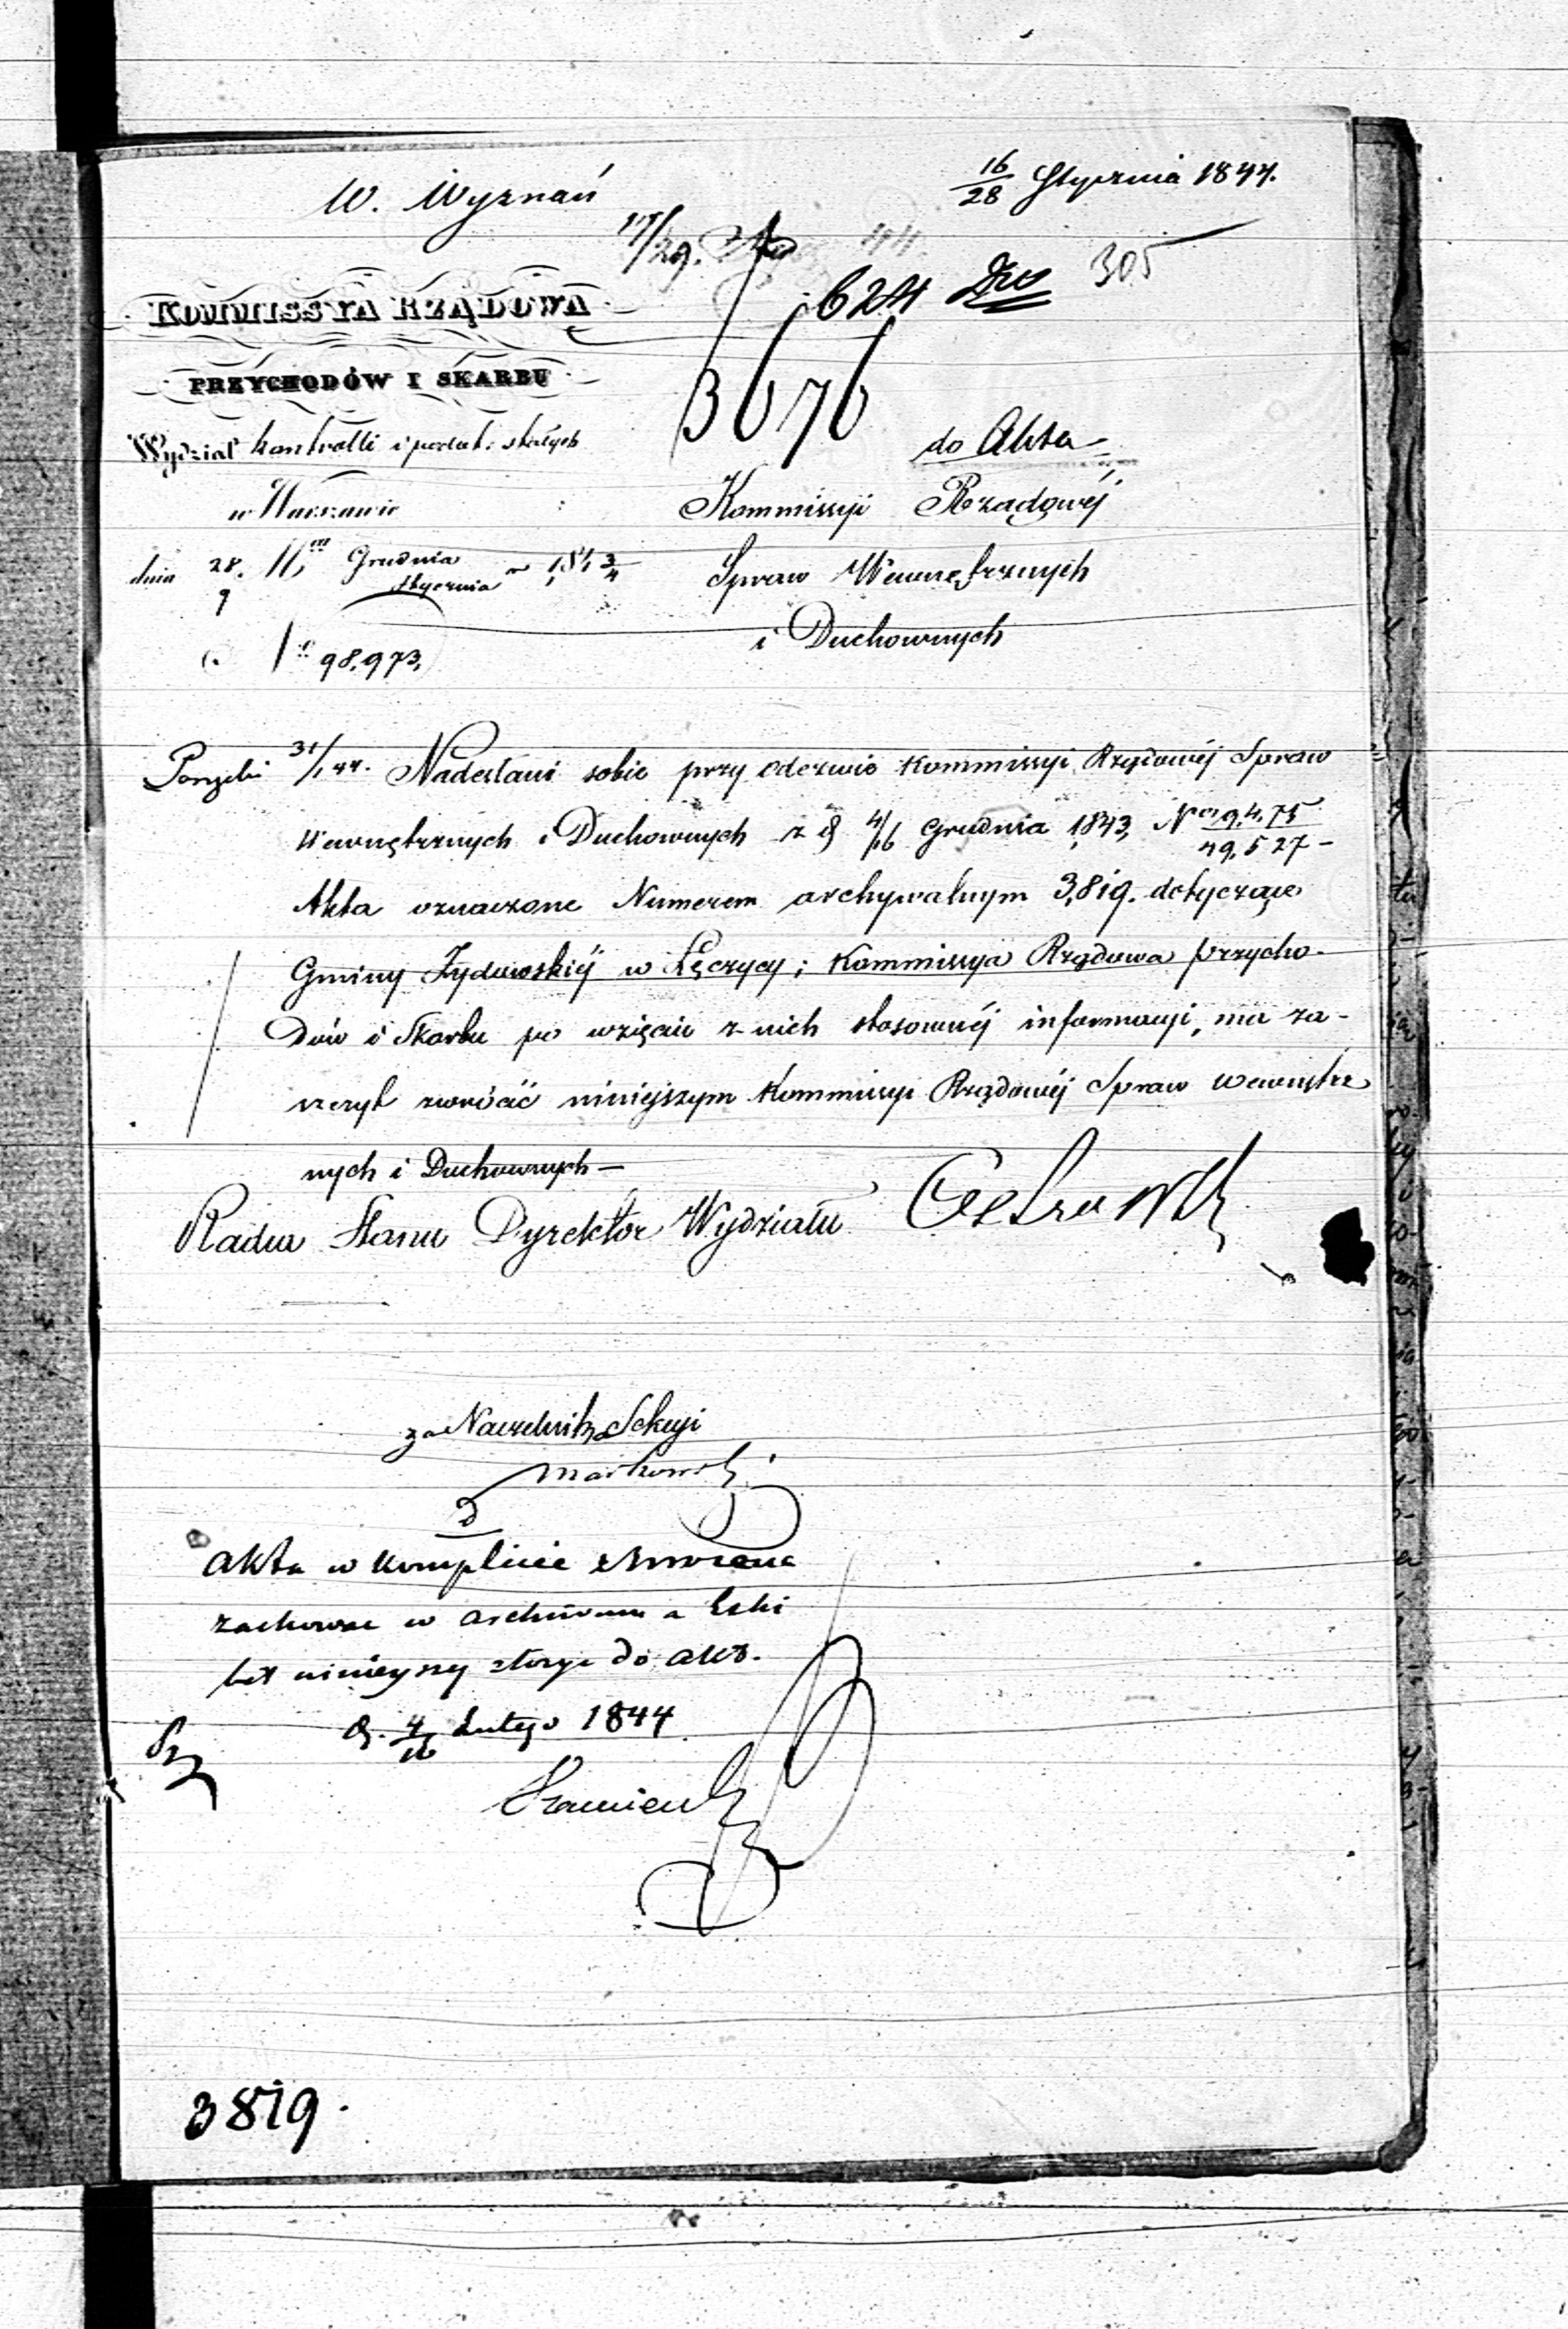 W. Wyznań
16/28 Stycznia 1844.
17/29.
624
305
KOMMISSYA RZĄDOWA
PRZYCHODÓW I SKARBU
3676
Wydział kontrolli i podat: stałych
do Akta
w Warszawie
Kommissyi Rządowéj
dnia 28. Grudnia / 9 Stycznia 184 3/4
Spraw Wewnętrznych
i Duchownych
98,973,
31/1 44. Nadesłane sobie przy odezwie Kommissyi Rządowéj Spraw
Wewnętrznych i Duchownych z d 4/16 Grudnia 1843, N 19,475 / 49,527 –
Akta oznaczone Numerem archywalnym 3,819. dotyczące
Gminy Żydowskiéj w Łęczycy; Kommissya Rządowa Przycho-
dów i Skarbu po wzięciu z nich stosownéj informacyi, ma za-
szczyt zwrócić niniejszym Kommissyi Rządowéj Spraw Wewnętrz
nych i Duchownych —
Radca Stanu Dyrektor Wydziału
za Naczelnika Sekcyi
Markowski
Akta w komplecie zwrócone
zachować w archiwum a
niniejszy złożyć do akt.
d. 4/16 Lutego 1844
3819.